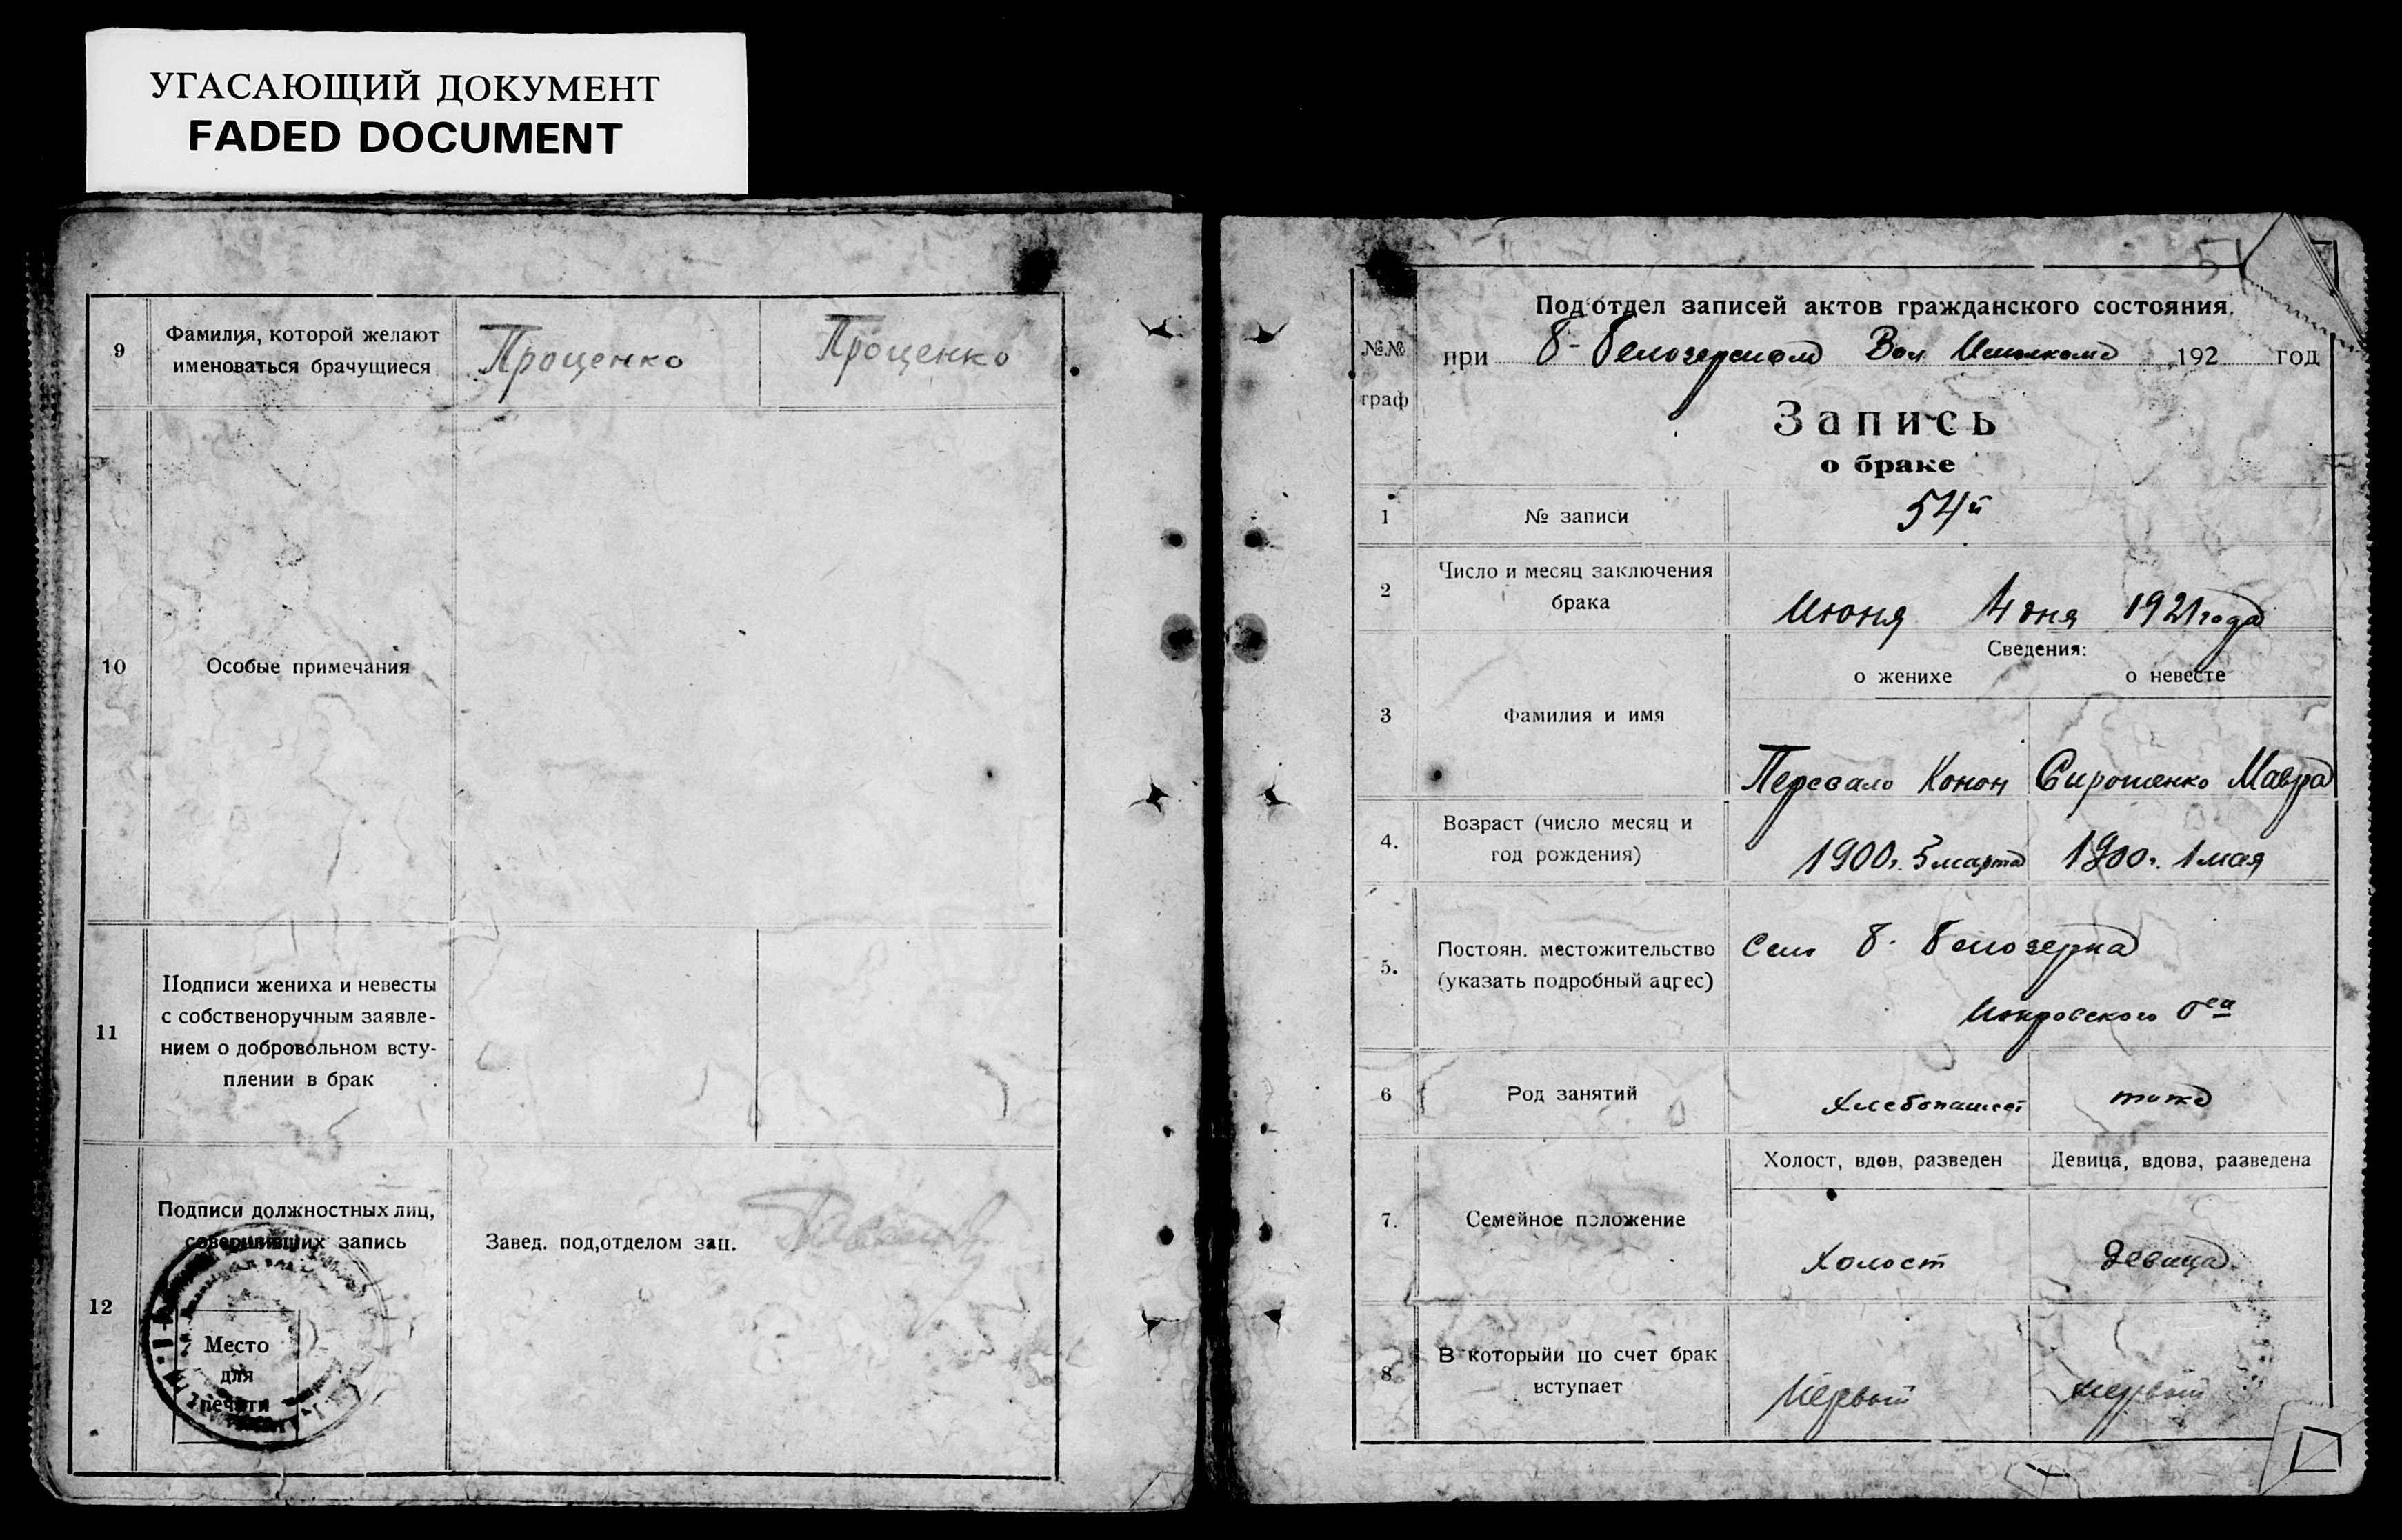 УГАСАЮЩИЙ ДОКУМЕНТ
FADED DOCUMENT
9
Фамилия, которой желают
именоваться брачущиеся
Проценко
Проценко
10
Особые примечания
11
Подписи жениха и невесты
с собственоручным заявле-
нием о добровольном всту-
плении в брак
12
Подписи должностных лиц,
совершивших запись
Завед. под,отделом зап.
Место
для
печати
№№
граф
Под'отдел записей актов гражданского состояния.
при Б-Белозерском Вол Исполкоме 192 год
Запись
о браке
1
№ записи
54й
2
Число и месяц заключения
брака
Июня 4 дня 1921 года
Сведения:
о женихе
о невесте
3
Фамилия и имя
Перевало Конон
Сиротенко Мавра
4.
Возраст (число месяц и
год рождения)
1900г. 5 марта
1900г. 1 мая
5.
Постоян. местожительство
(указать подробный адрес)
Село Б. Белозерка
6
Род занятий
Хлебопашест
тоже
7.
Семейное положение
Холост, вдов, разведен
Девица, вдова, разведена
Холост
девица
8
В которыйи по счет брак
вступает
Первый
первый